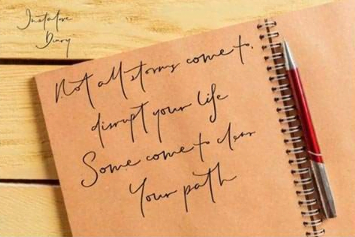 Instalove
Diary
Not all storms come to
disrupt your life
Some come to clear
Your path